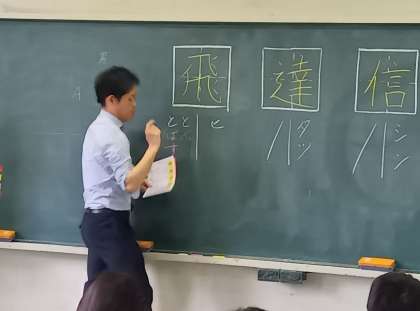 信
シン
達
タツ
飛
ヒ
とぶ
とばす